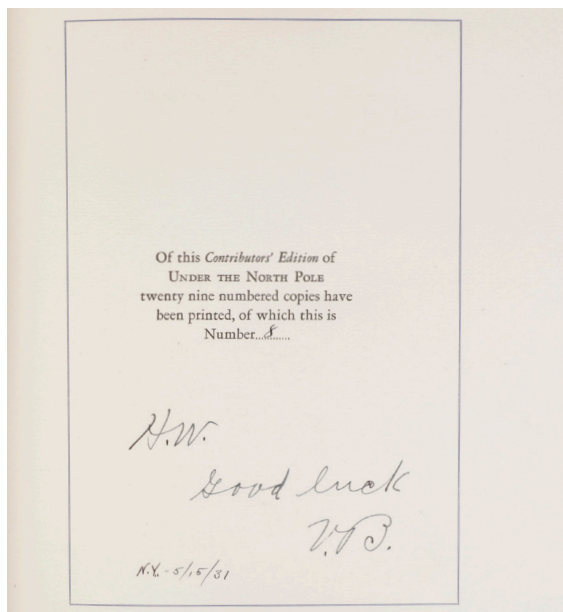 Of this Contributors' Edition of
UNDER THE NORTH POLE
twenty nine numbered copies have
been printed, of which this is
Number...8.......
H.W.
Good luck
V.B.
N.Y. - 5/15/31